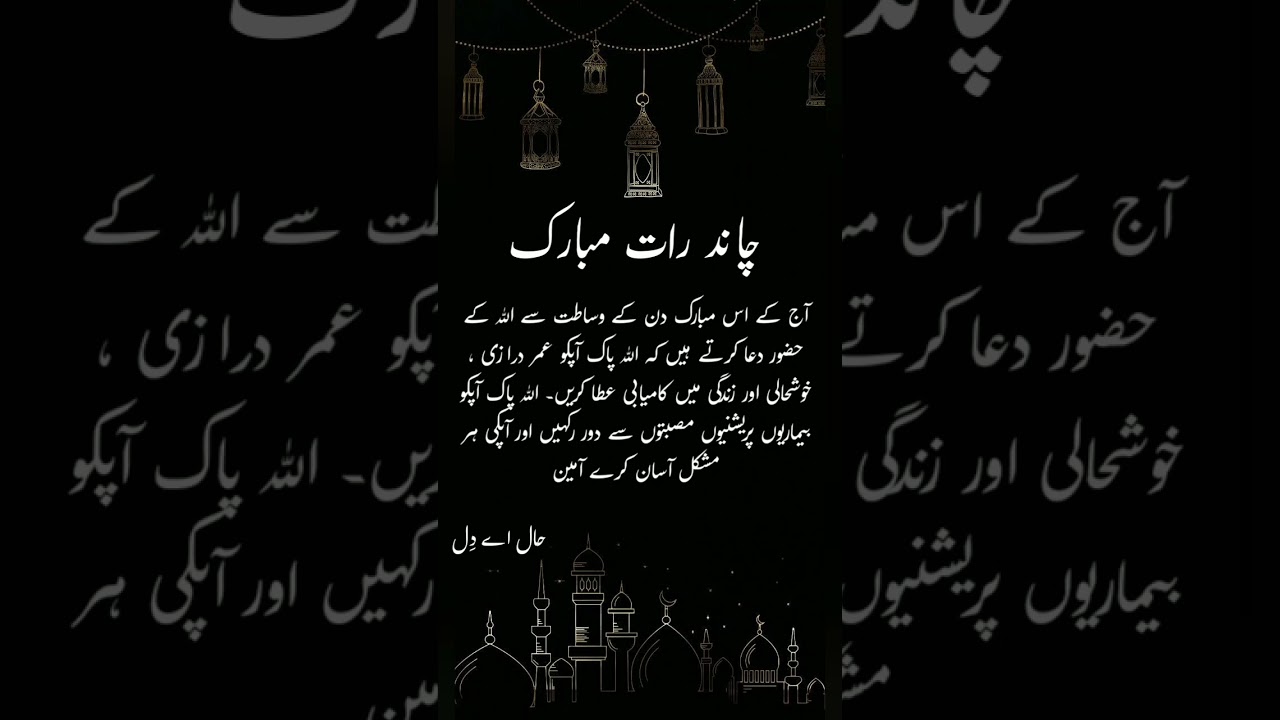 چاند رات مبارک
آج کے اس مبارک دن کے وساطت سے اللہ کے
حضور دعا کرتے ہیں کہ اللہ پاک آپکو عمر درازی ،
خوشحالی اور زندگی میں کامیابی عطا کریں۔ اللہ پاک آپکو
بیماریوں پریشنیوں مصبتوں سے دور رکہیں اور آپکی ہر
مشکل آسان کرے آمین
حال اے دِل